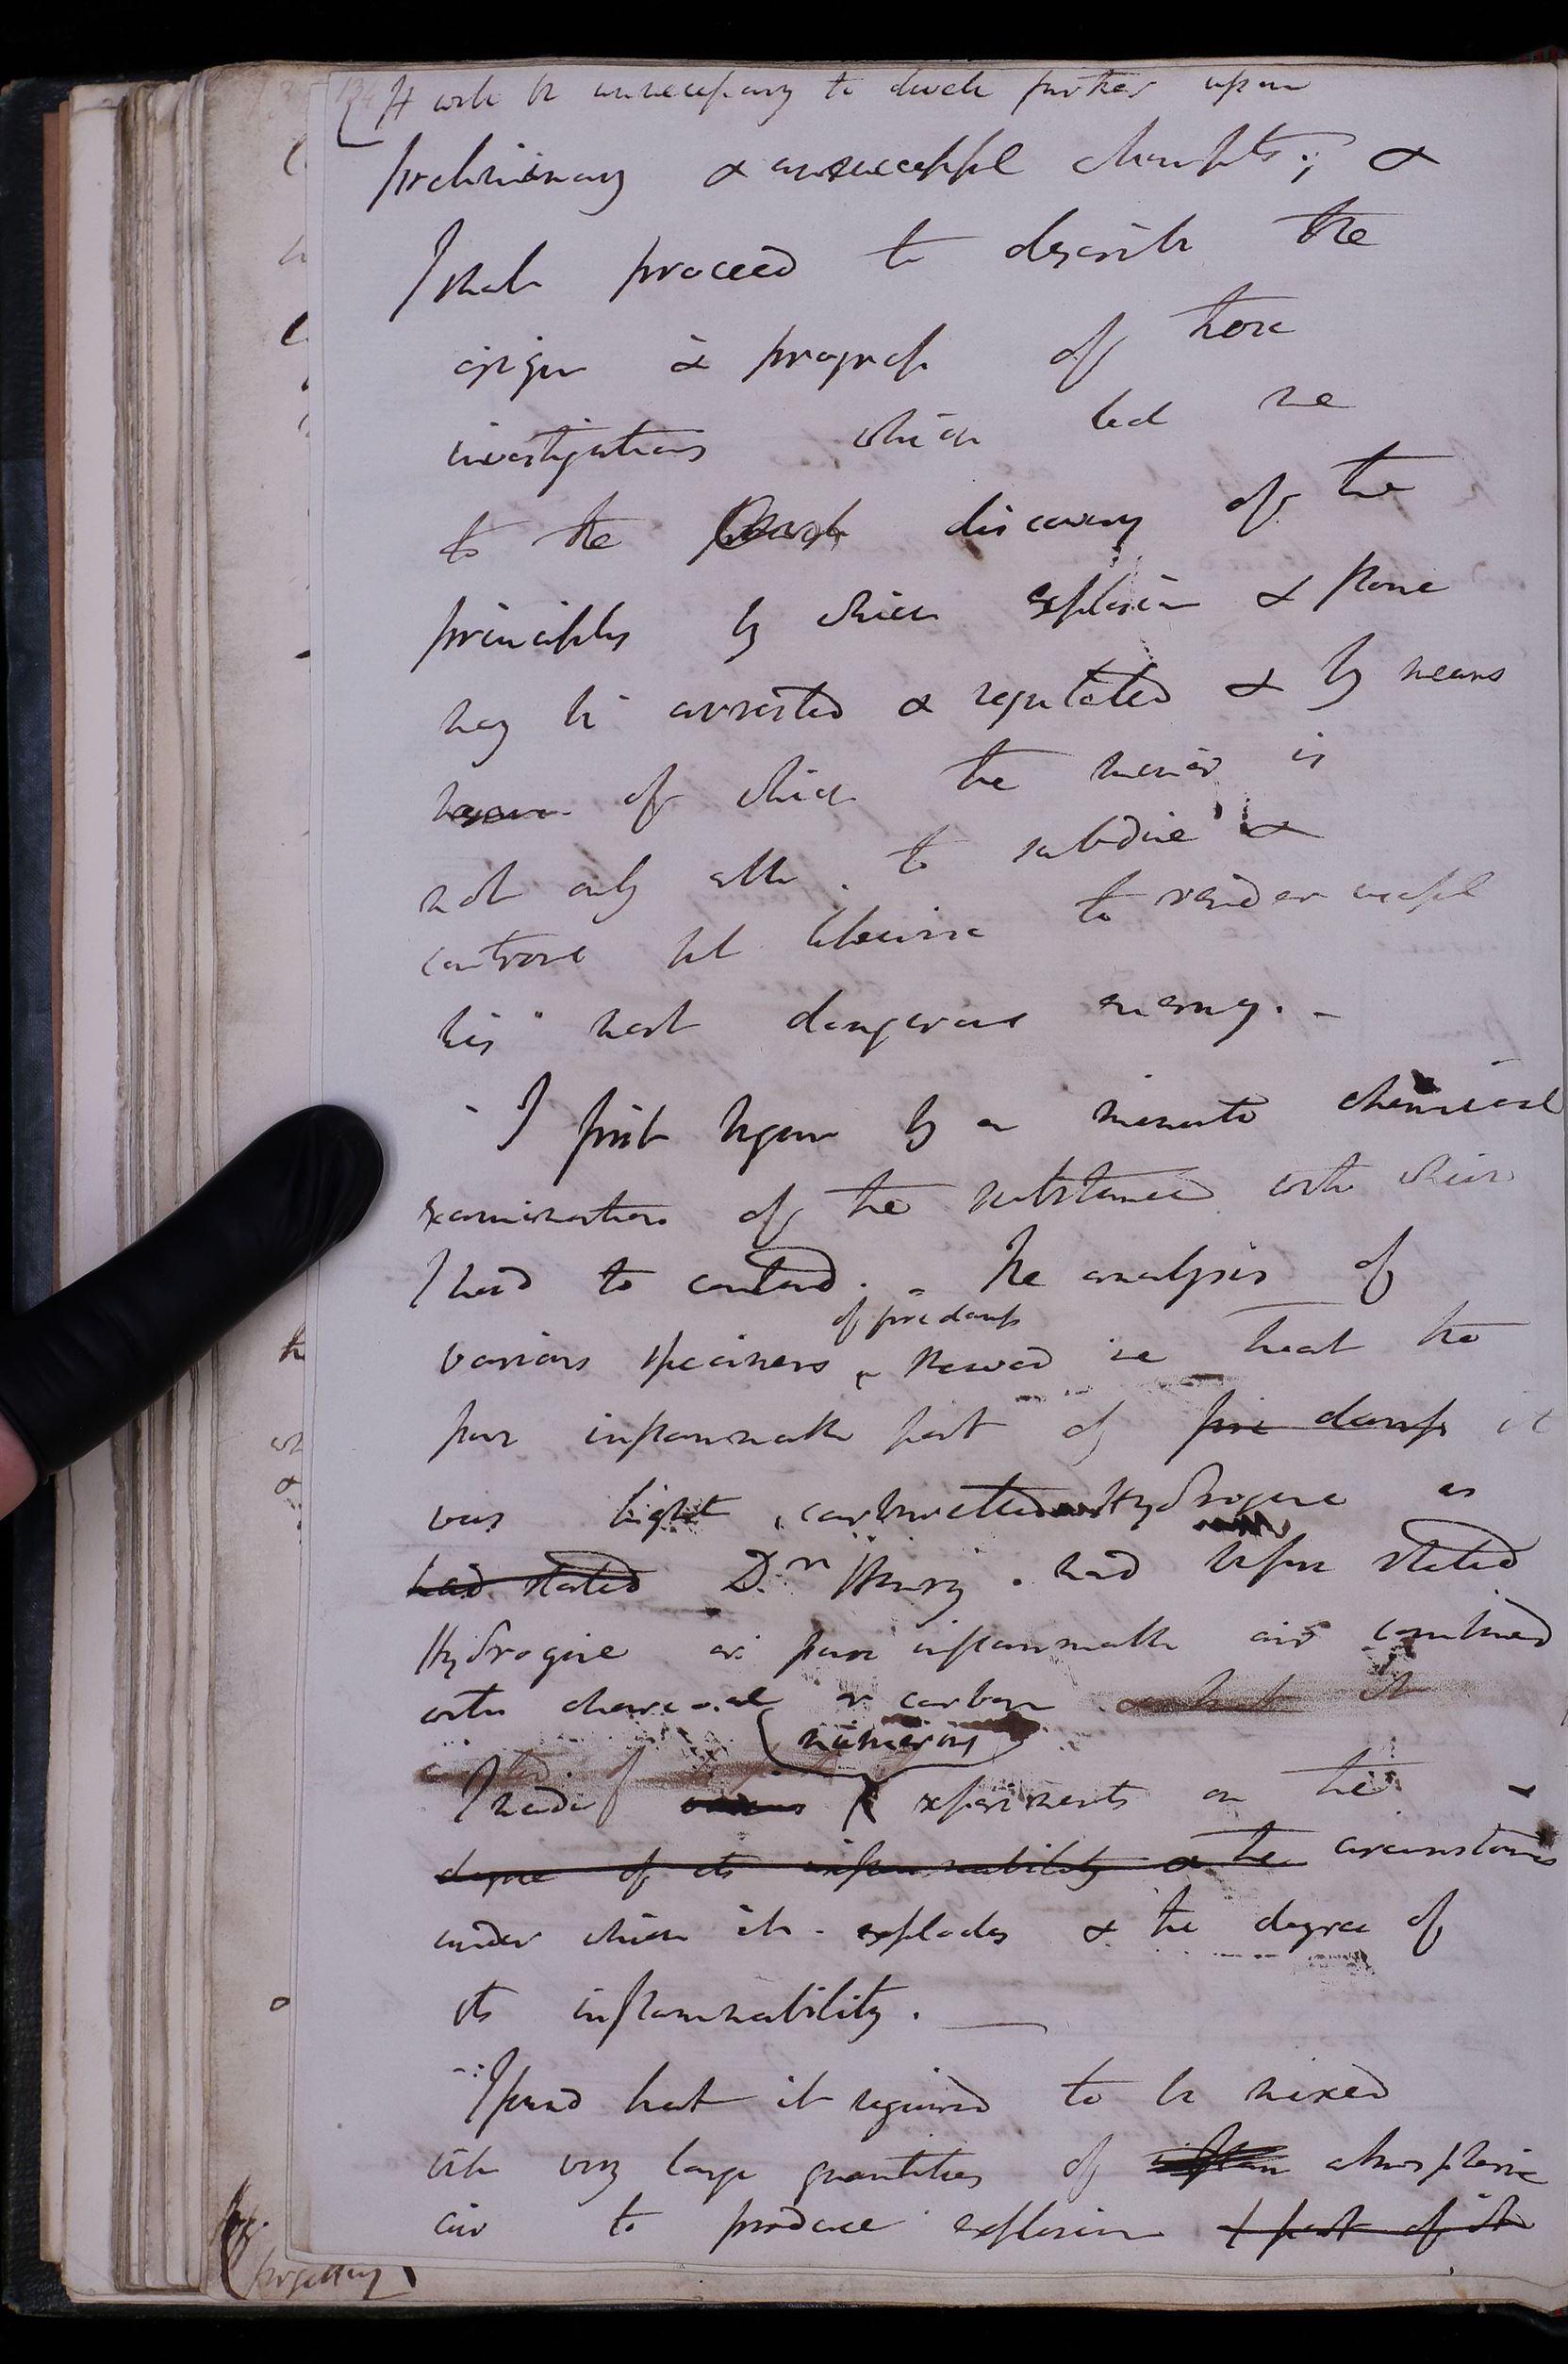 It will be unnecessary to dwell further upon
preliminary & unsuccessful attempts; &
I shall proceed to describe the
origin & progress of those
investigations which led me
to the discovery of the
principles by which explosion & flame
may be arrested & regulated & by means
of which the miner is
not only able to subdue &
controul but likewise to render useful
his most dangerous enemy. -
I first began by a minute chemical
examination of the substances with which
I had to contend. - The analysis of
of fire damp
various specimens shewed me that the
pure inflammable part of fire damp it
was light carburetted Hydrogene as
had stated Dr Henry had before stated
Hydrogene or pure inflammable air combined
with charcoal or carbon & that it
numerous
I made various experiments on the
degree of its inflammability & the circumstances
under which it explodes & the degree of
its inflammability. —
I found that it required to be mixed
with very large quantities of inflam atmospheric
air to produce explosion & part of it
forgetting